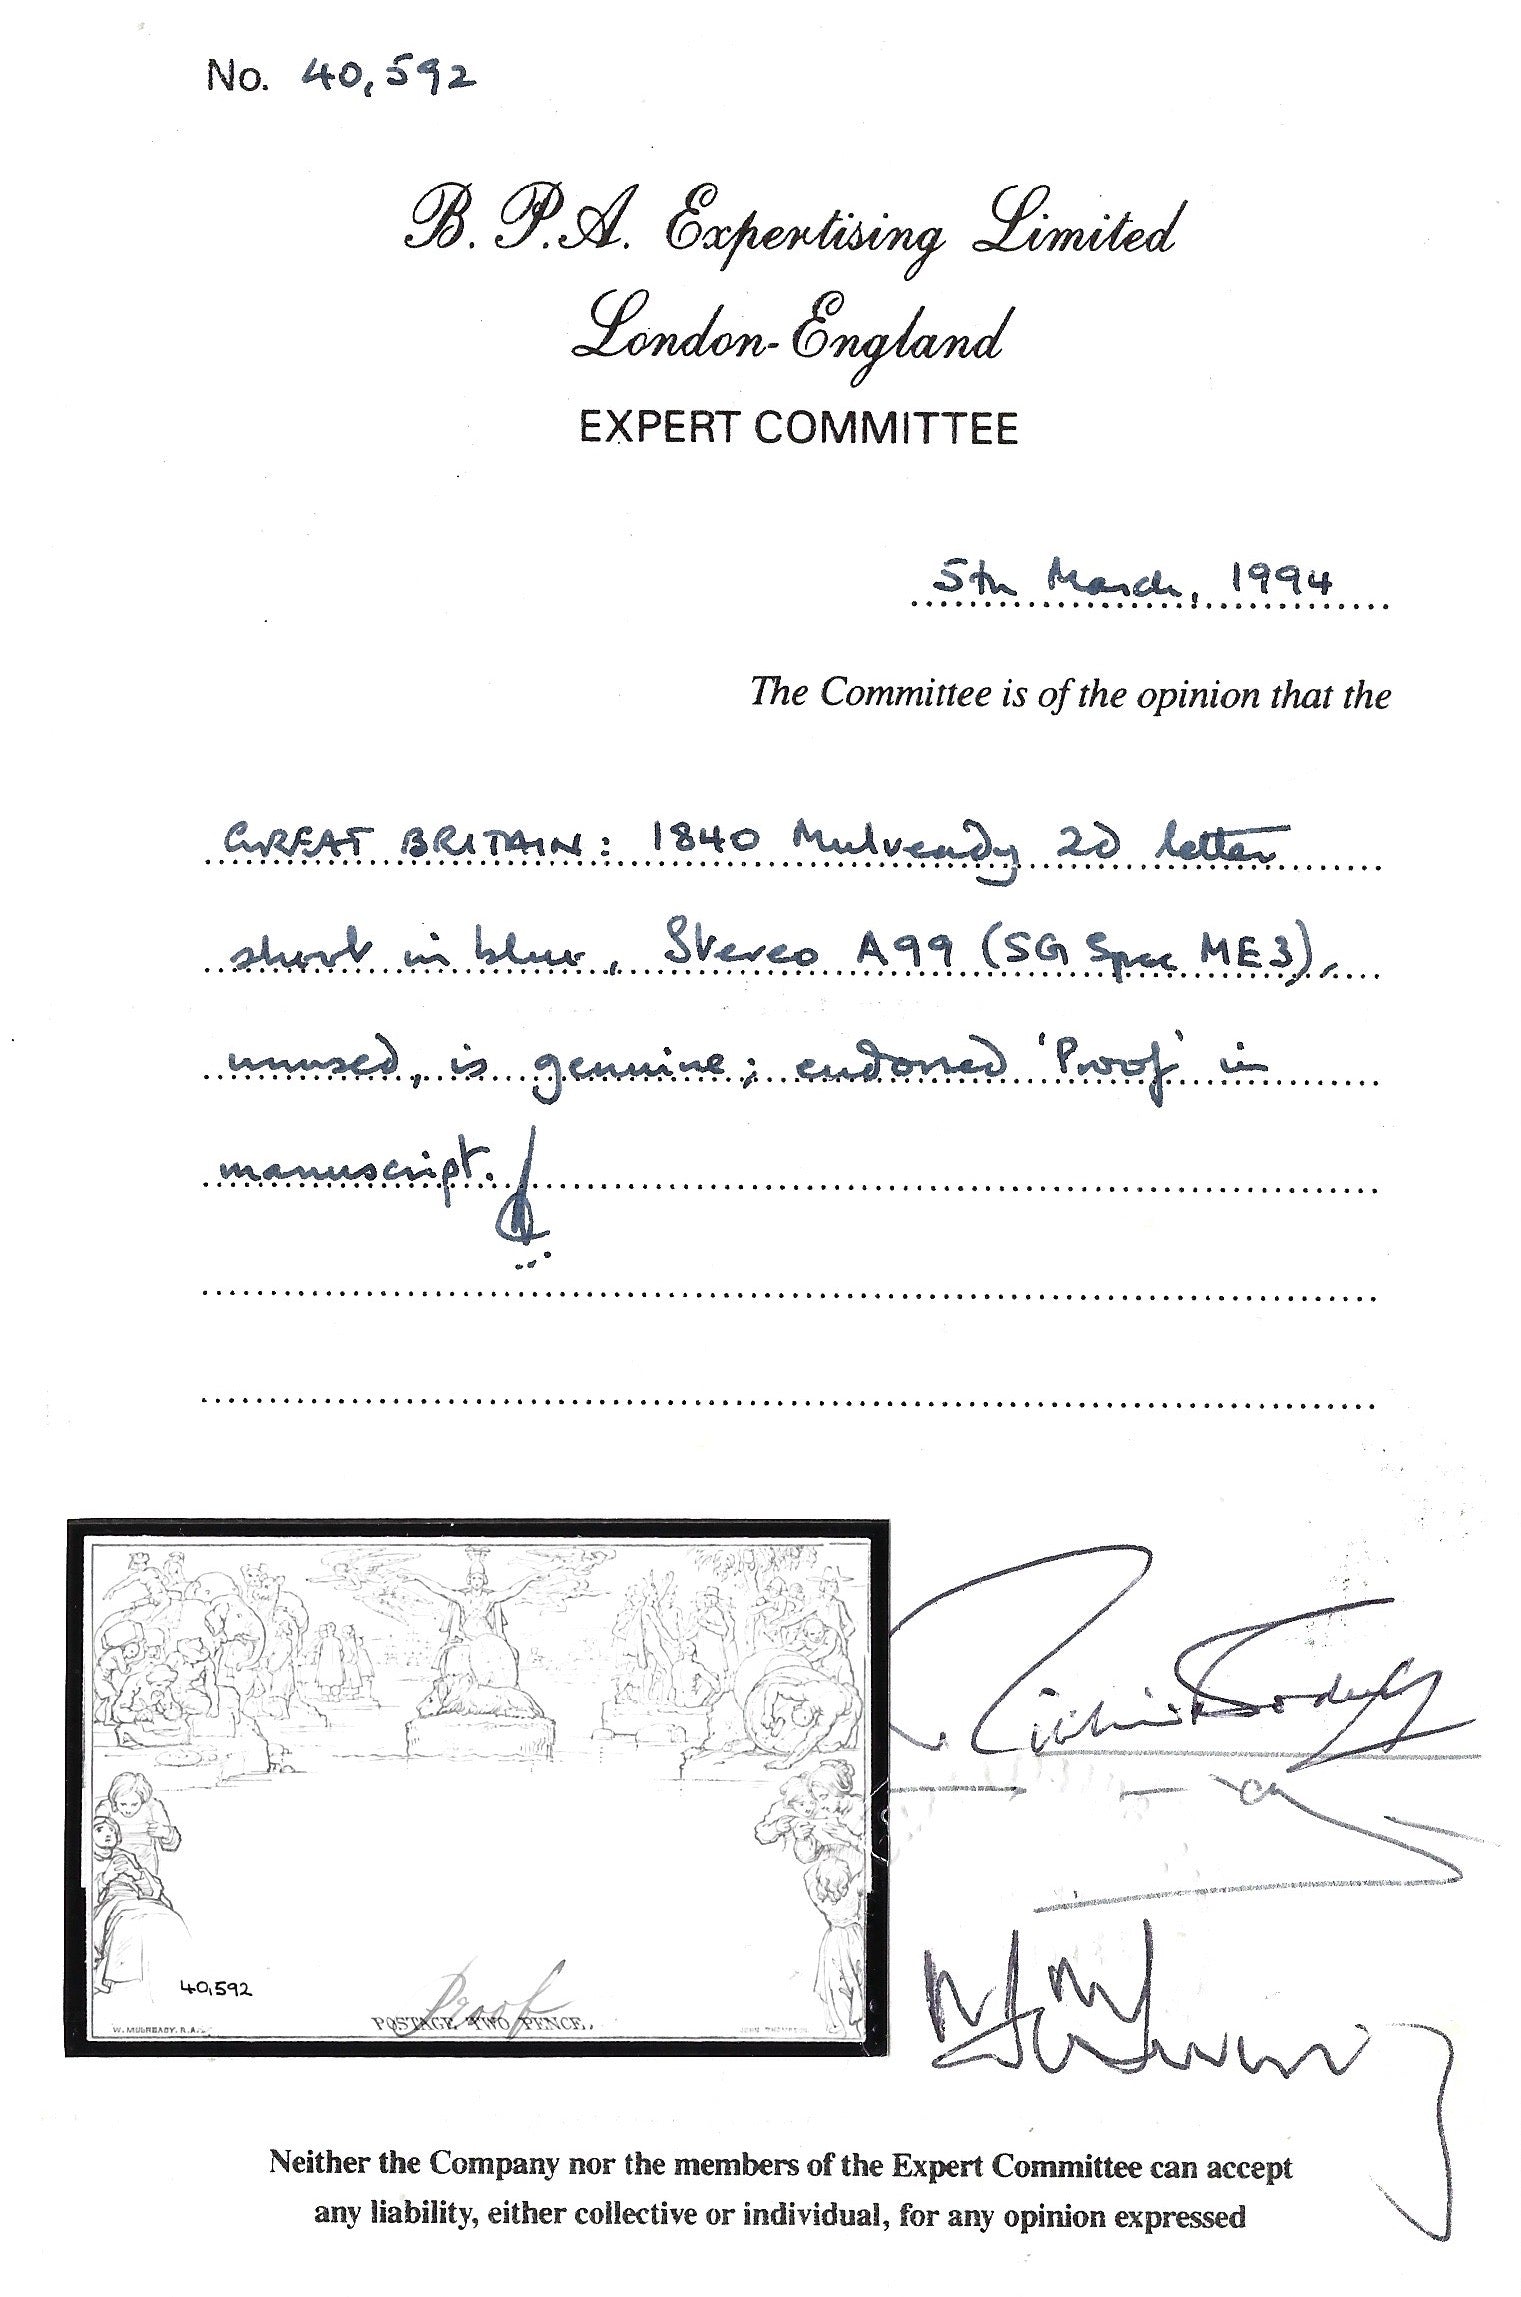 No. 40,592
B. P. A. Expertising Limited
London-England
EXPERT COMMITTEE
5th March, 1994
The Committee is of the opinion that the
GREAT BRITAIN: 1840 Mulready 2d letter
sheet in blue, Stereo A99 (SG Spec ME3),
unused, is genuine; endorsed 'Proof' in
manuscript.
40,592
Proof
POSTAGE TWO PENCE.
W. MULREADY. R.A.
JOHN THOMPSON
Neither the Company nor the members of the Expert Committee can accept
any liability, either collective or individual, for any opinion expressed